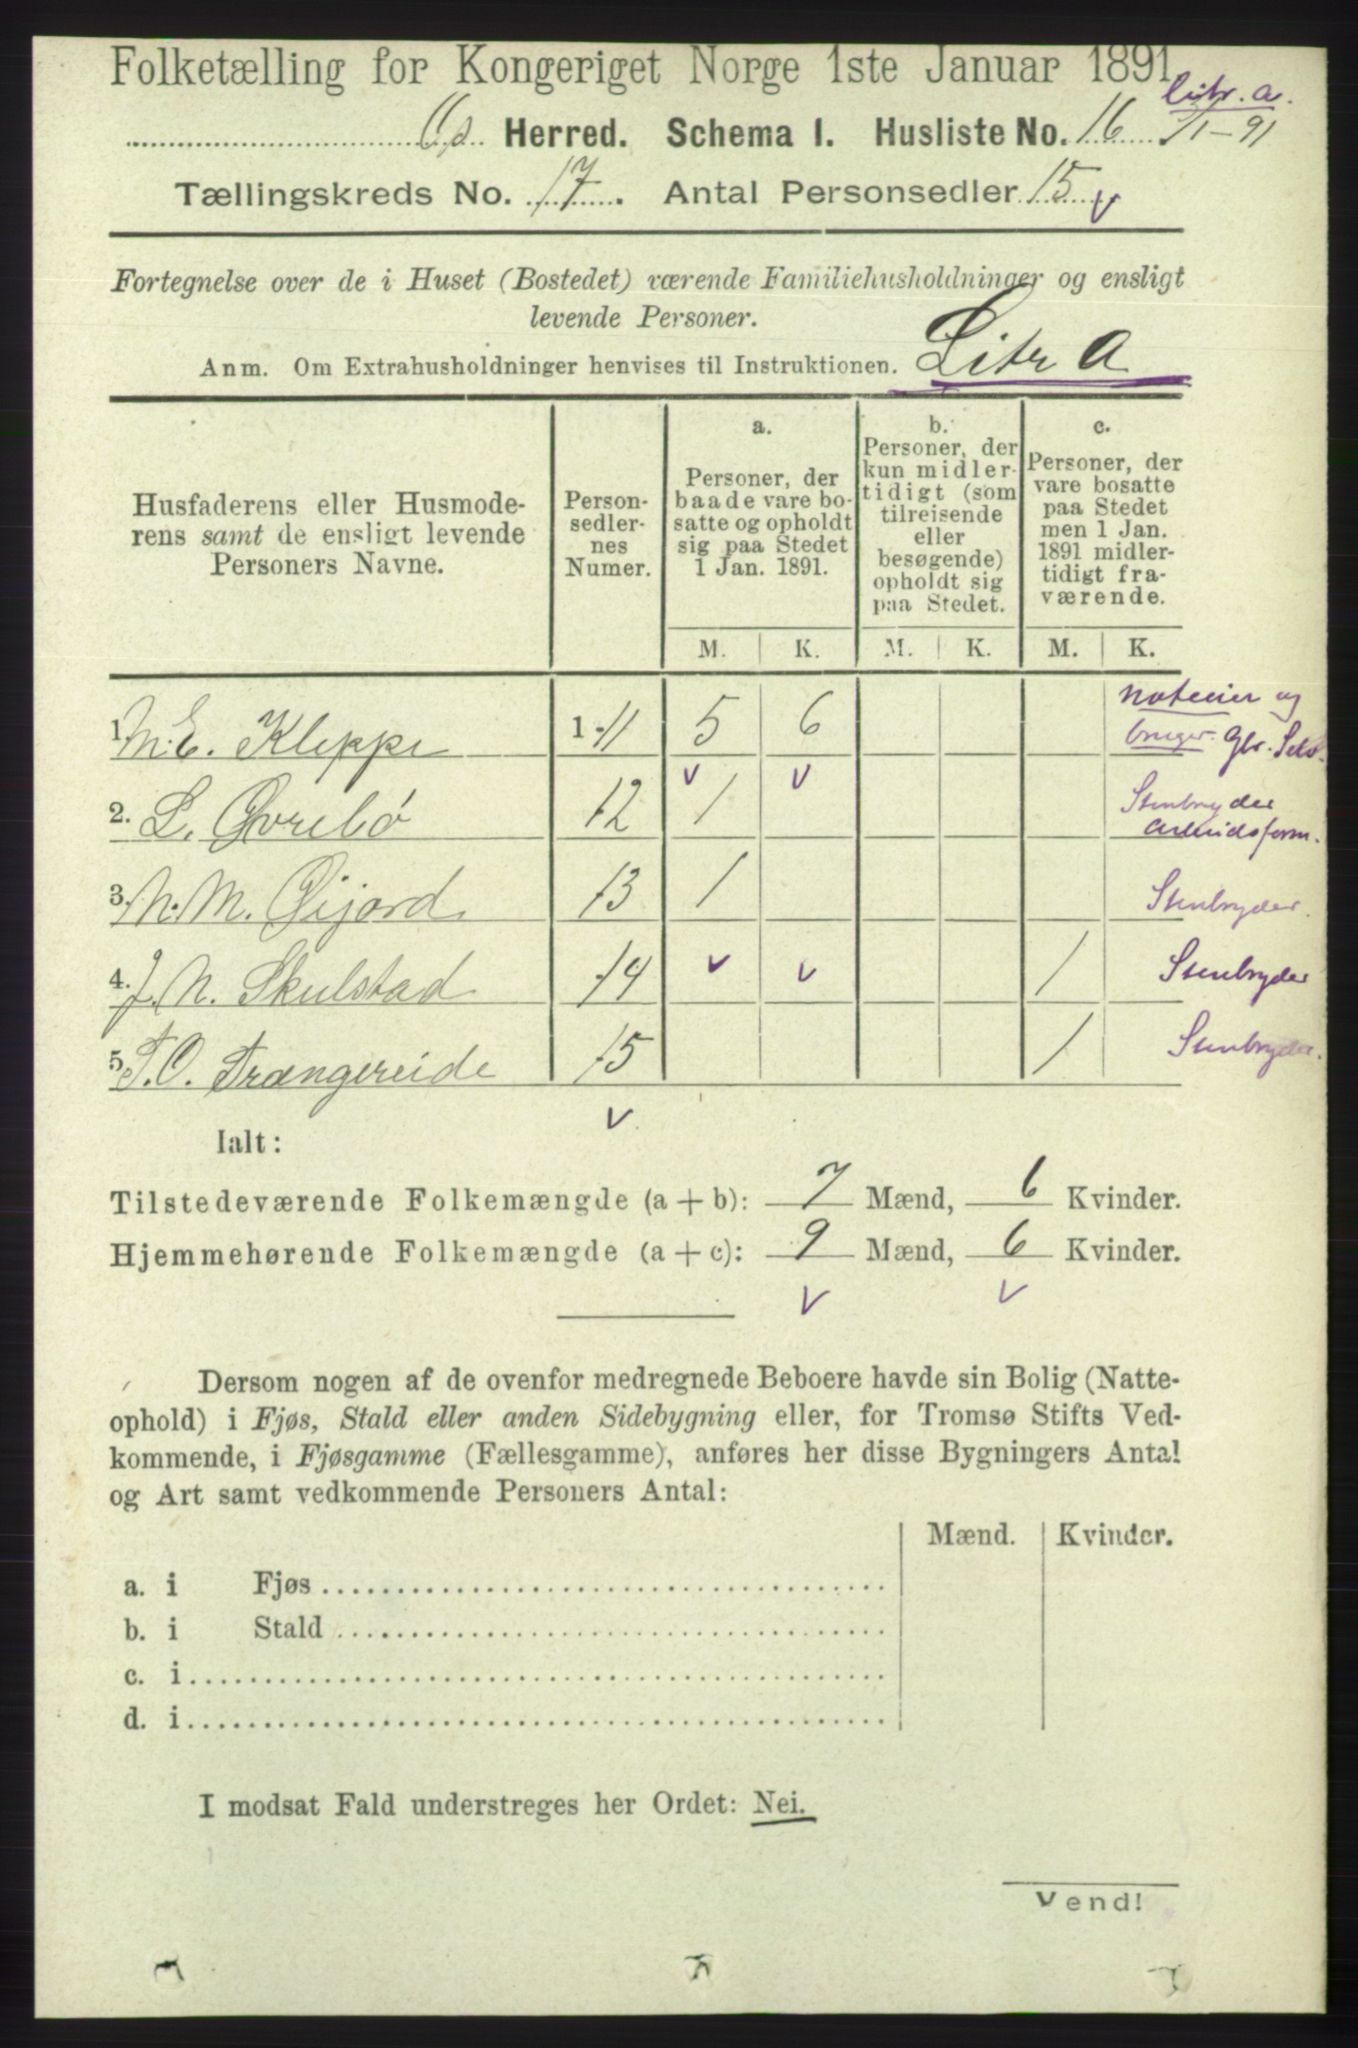 Folketælling for Kongeriget Norge 1ste Januar 1891
Litr. a.
Os Herred. Schema I. Husliste No. 16 1/1-91
Tællingskreds No. 17. Antal Personsedler 15 v
Fortegnelse over de i Huset (Bostedet) værende Familiehusholdninger og ensligt
levende Personer.
Anm. Om Extrahusholdninger henvises til Instruktionen. Litr A
Husfaderens eller Husmode-
rens samt de ensligt levende
Personers Navne.
Person-
sedler-
nes
Numer.
a.
Personer, der
baade vare bo-
satte og opholdt
sig paa Stedet
1 Jan. 1891.
b.
Personer, der
kun midler-
tidigt (som
tilreisende
eller
besøgende)
opholdt sig
paa Stedet.
c.
Personer, der
vare bosatte
paa Stedet
men 1 Jan.
1891 midler-
tidigt fra-
værende.
M. K. M. K. M. K.
1. M. E. Kleppe 1-11 5 6
og
bruger
v v
2. L. Øvrebø 12 1 Stenbryder
3. N. M. Øijord 13 1 Stenbryder
4. J. N. Skulstad 14 v v 1 Stenbryder
5. T. O. Trængereide 15 1 Stenbryder
v
Ialt:
Tilstedeværende Folkemængde (a + b): 7 Mænd, 6 Kvinder.
Hjemmehørende Folkemængde (a + c): 9 Mænd, 6 Kvinder.
v v
Dersom nogen af de ovenfor medregnede Beboere havde sin Bolig (Natte-
ophold) i Fjøs, Stald eller anden Sidebygning eller, for Tromsø Stifts Ved-
kommende, i Fjøsgamme (Fællesgamme), anføres her disse Bygningers Antal
og Art samt vedkommende Personers Antal:
Mænd. Kvinder.
a. i Fjøs
b. i Stald
c. i
d. i
I modsat Fald understreges her Ordet: Nei.
Vend!